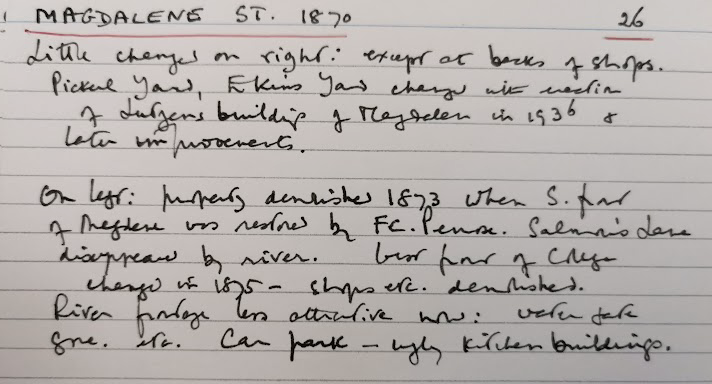 MAGDALENE ST. 1870 26
Little changed on right: except at backs of shops.
Pickerel Yard, Ekins Yard changed with erection
of Lutyens building of Magdalen in 1936 &
later improvements.
On left: property demolished 1873 when S. front
of Magdalene was restored by F.C. Penrose. Salmon's Lane
disappeared by river. West front of College
changed in 1875 - shops etc. demolished.
River frontage less attractive now: water gate
gone. etc. Car park - ugly kitchen buildings.